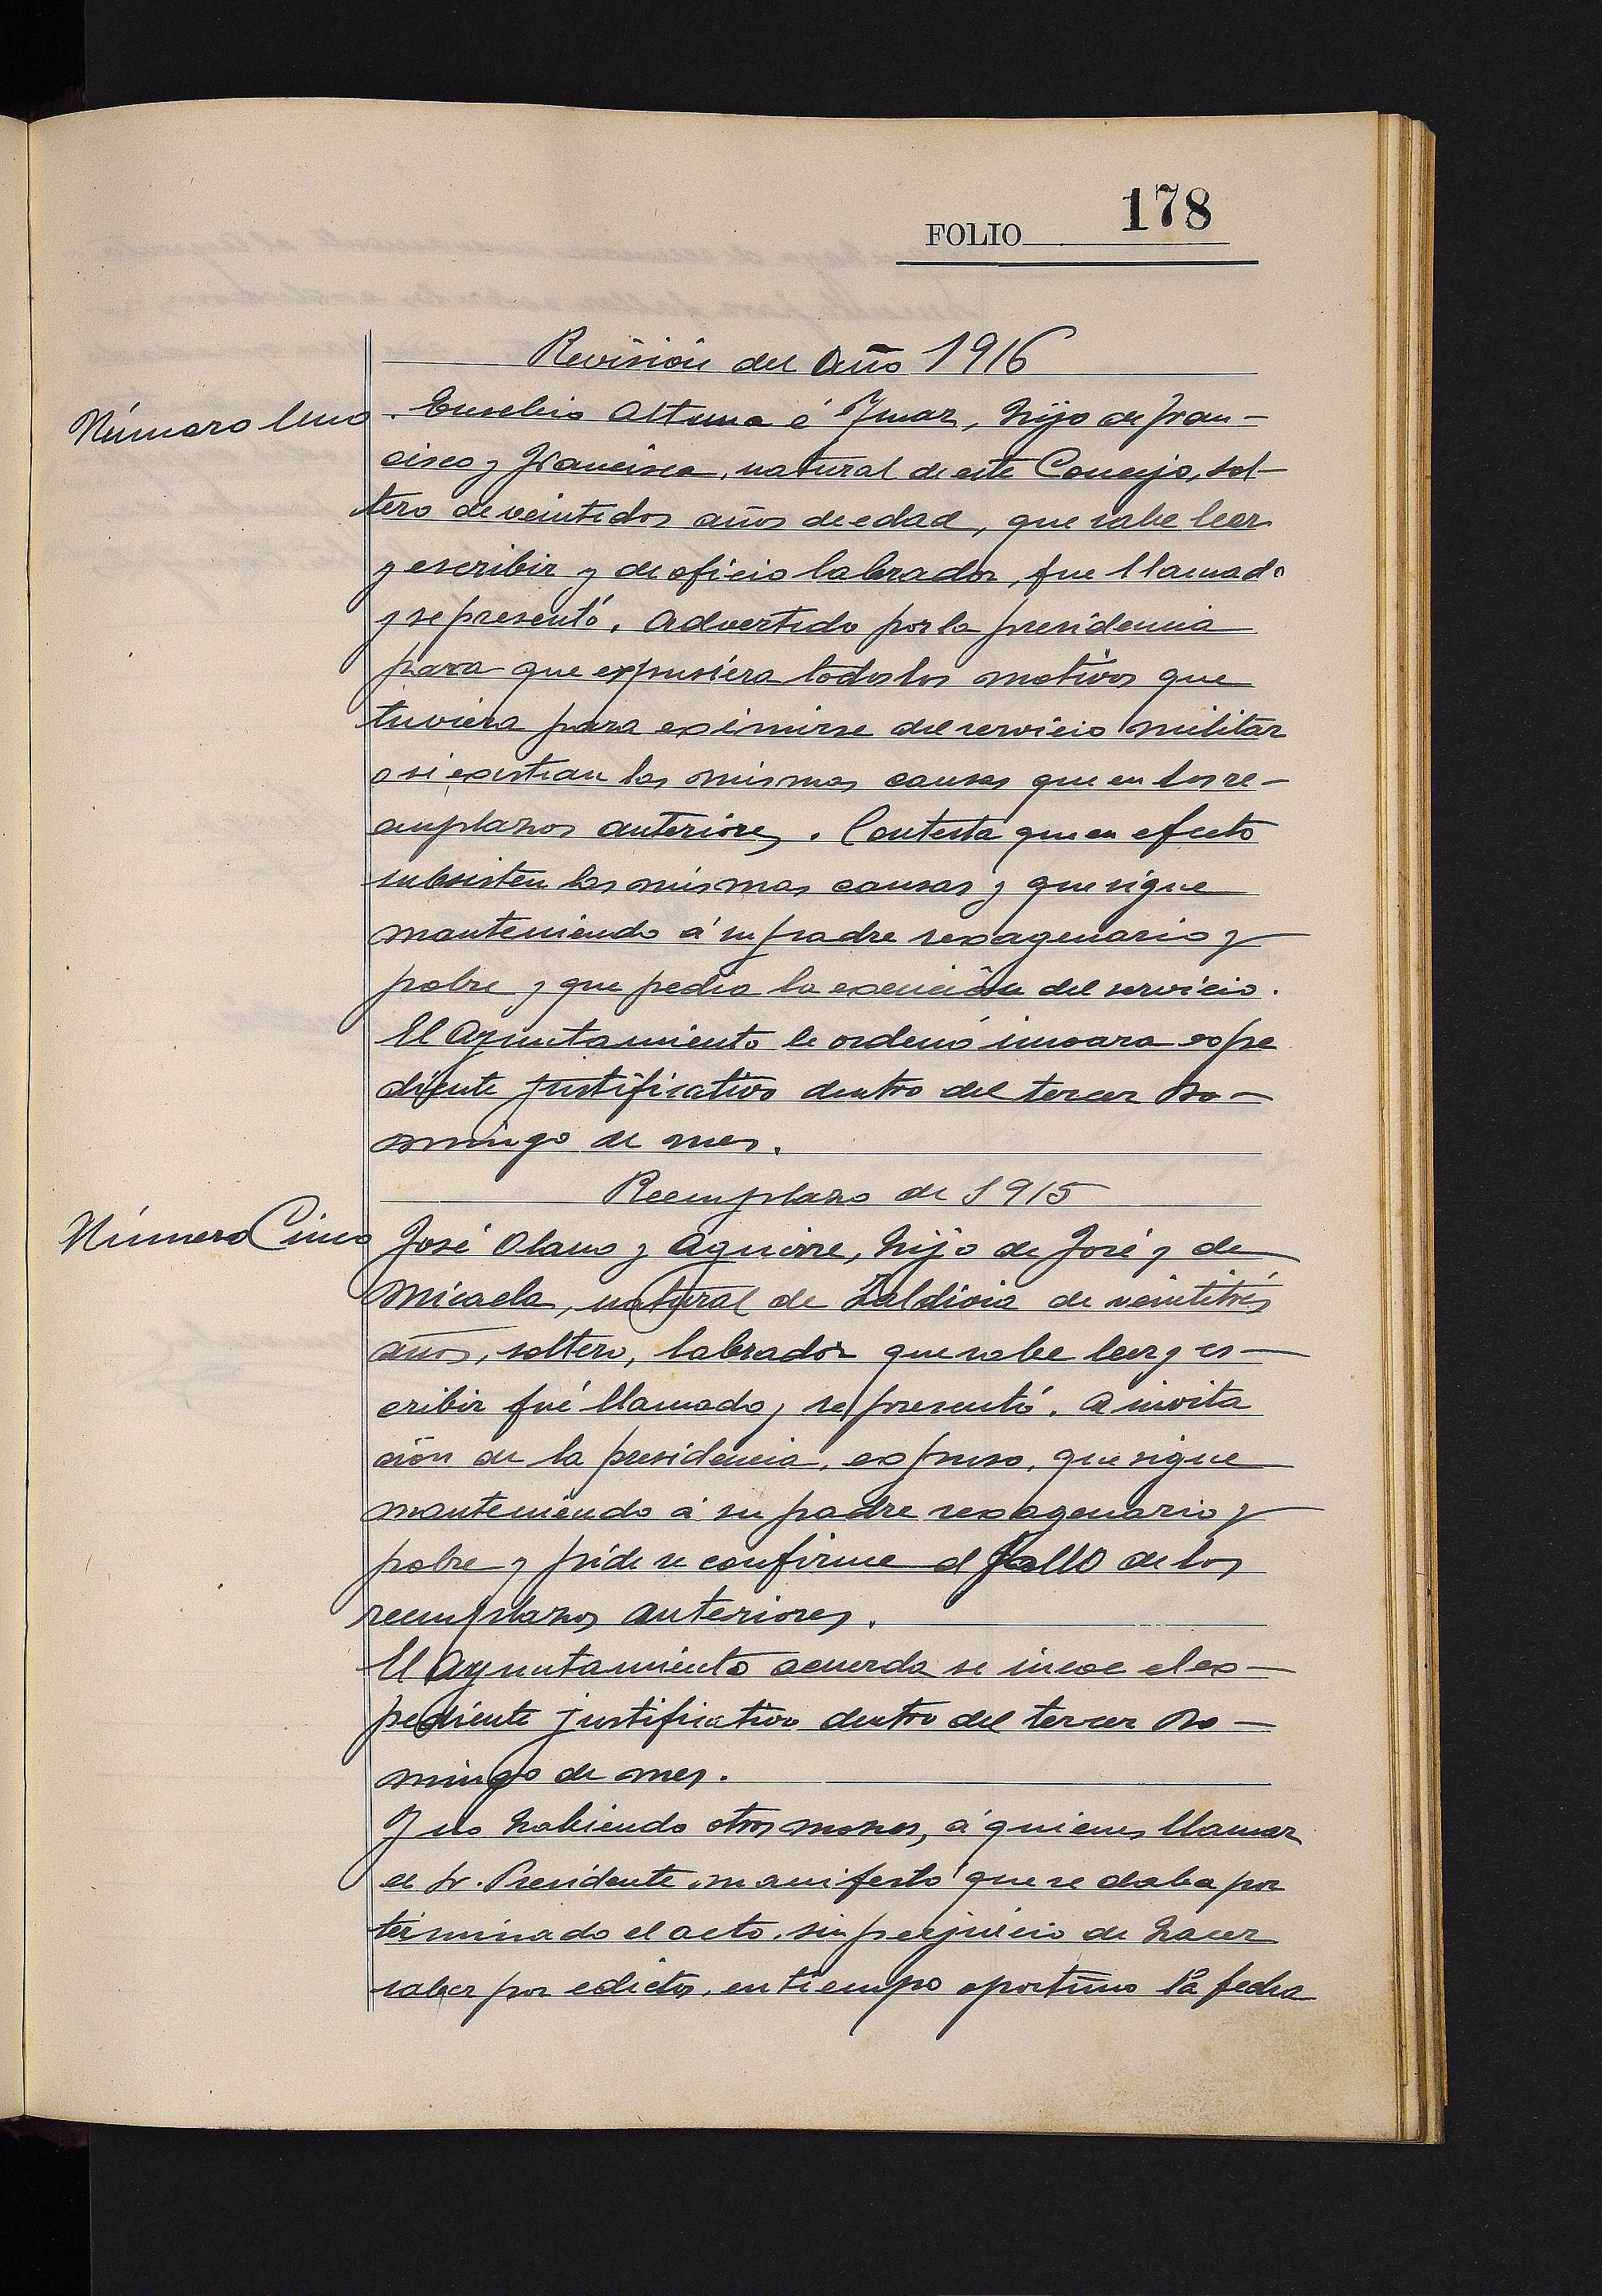 FOLIO 178
Revisión del Año 1916
Número Uno
Eusebio Altuna é Ymaz, hijo de Fran-
cisco y Francisca, natural de este Concejo, sol-
tero de veintidos años de edad, que sabe leer
y escribir y de oficio labrador, fue llamado
y se presentó. Advertido por la presidencia
para que expusiera todos los motivos que
tuviera para eximirse del servicio militar
o si existian las mismas causas que en los re-
emplazos anteriores. Contesta que en efecto
subsisten las mismas causas y que sigue
manteniendo á su padre sexagenario y
pobre y que pedia la exención del servicio.
El Ayuntamiento le ordenó incoara expe
diente justificativo dentro del tercer Do-
mingo de mes.
Reemplazo de 1915
Número Cinco
José Olano y Aguirre, hijo de José y de
Micaela, natural de Zaldivia de veintitrés
años, soltero, labrador que sabe leer y es-
cribir fué llamado y se presentó. A invita
ción de la presidencia, expuso, que sigue
manteniendo á su padre sexagenario y
pobre y pide se confirme el fallo de los
reemplazos anteriores.
El Ayuntamiento acuerda se incoe el ex-
pediente justificativo dentro del tercer Do-
mingo de mes.
Y no habiendo otros mozos, á quienes llamar
el Sr. Presidente, manifestó que se daba por
terminado el acto, sin perjuicio de hacer
saber por edictos, en tiempo oportuno la fecha